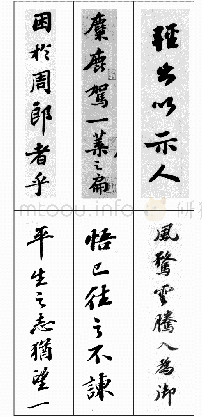 輕出以示人
麋鹿駕一葉之扁
困於周郎者乎
風驚雲騰入為御
悟已往之不諫
平生之志猶望一